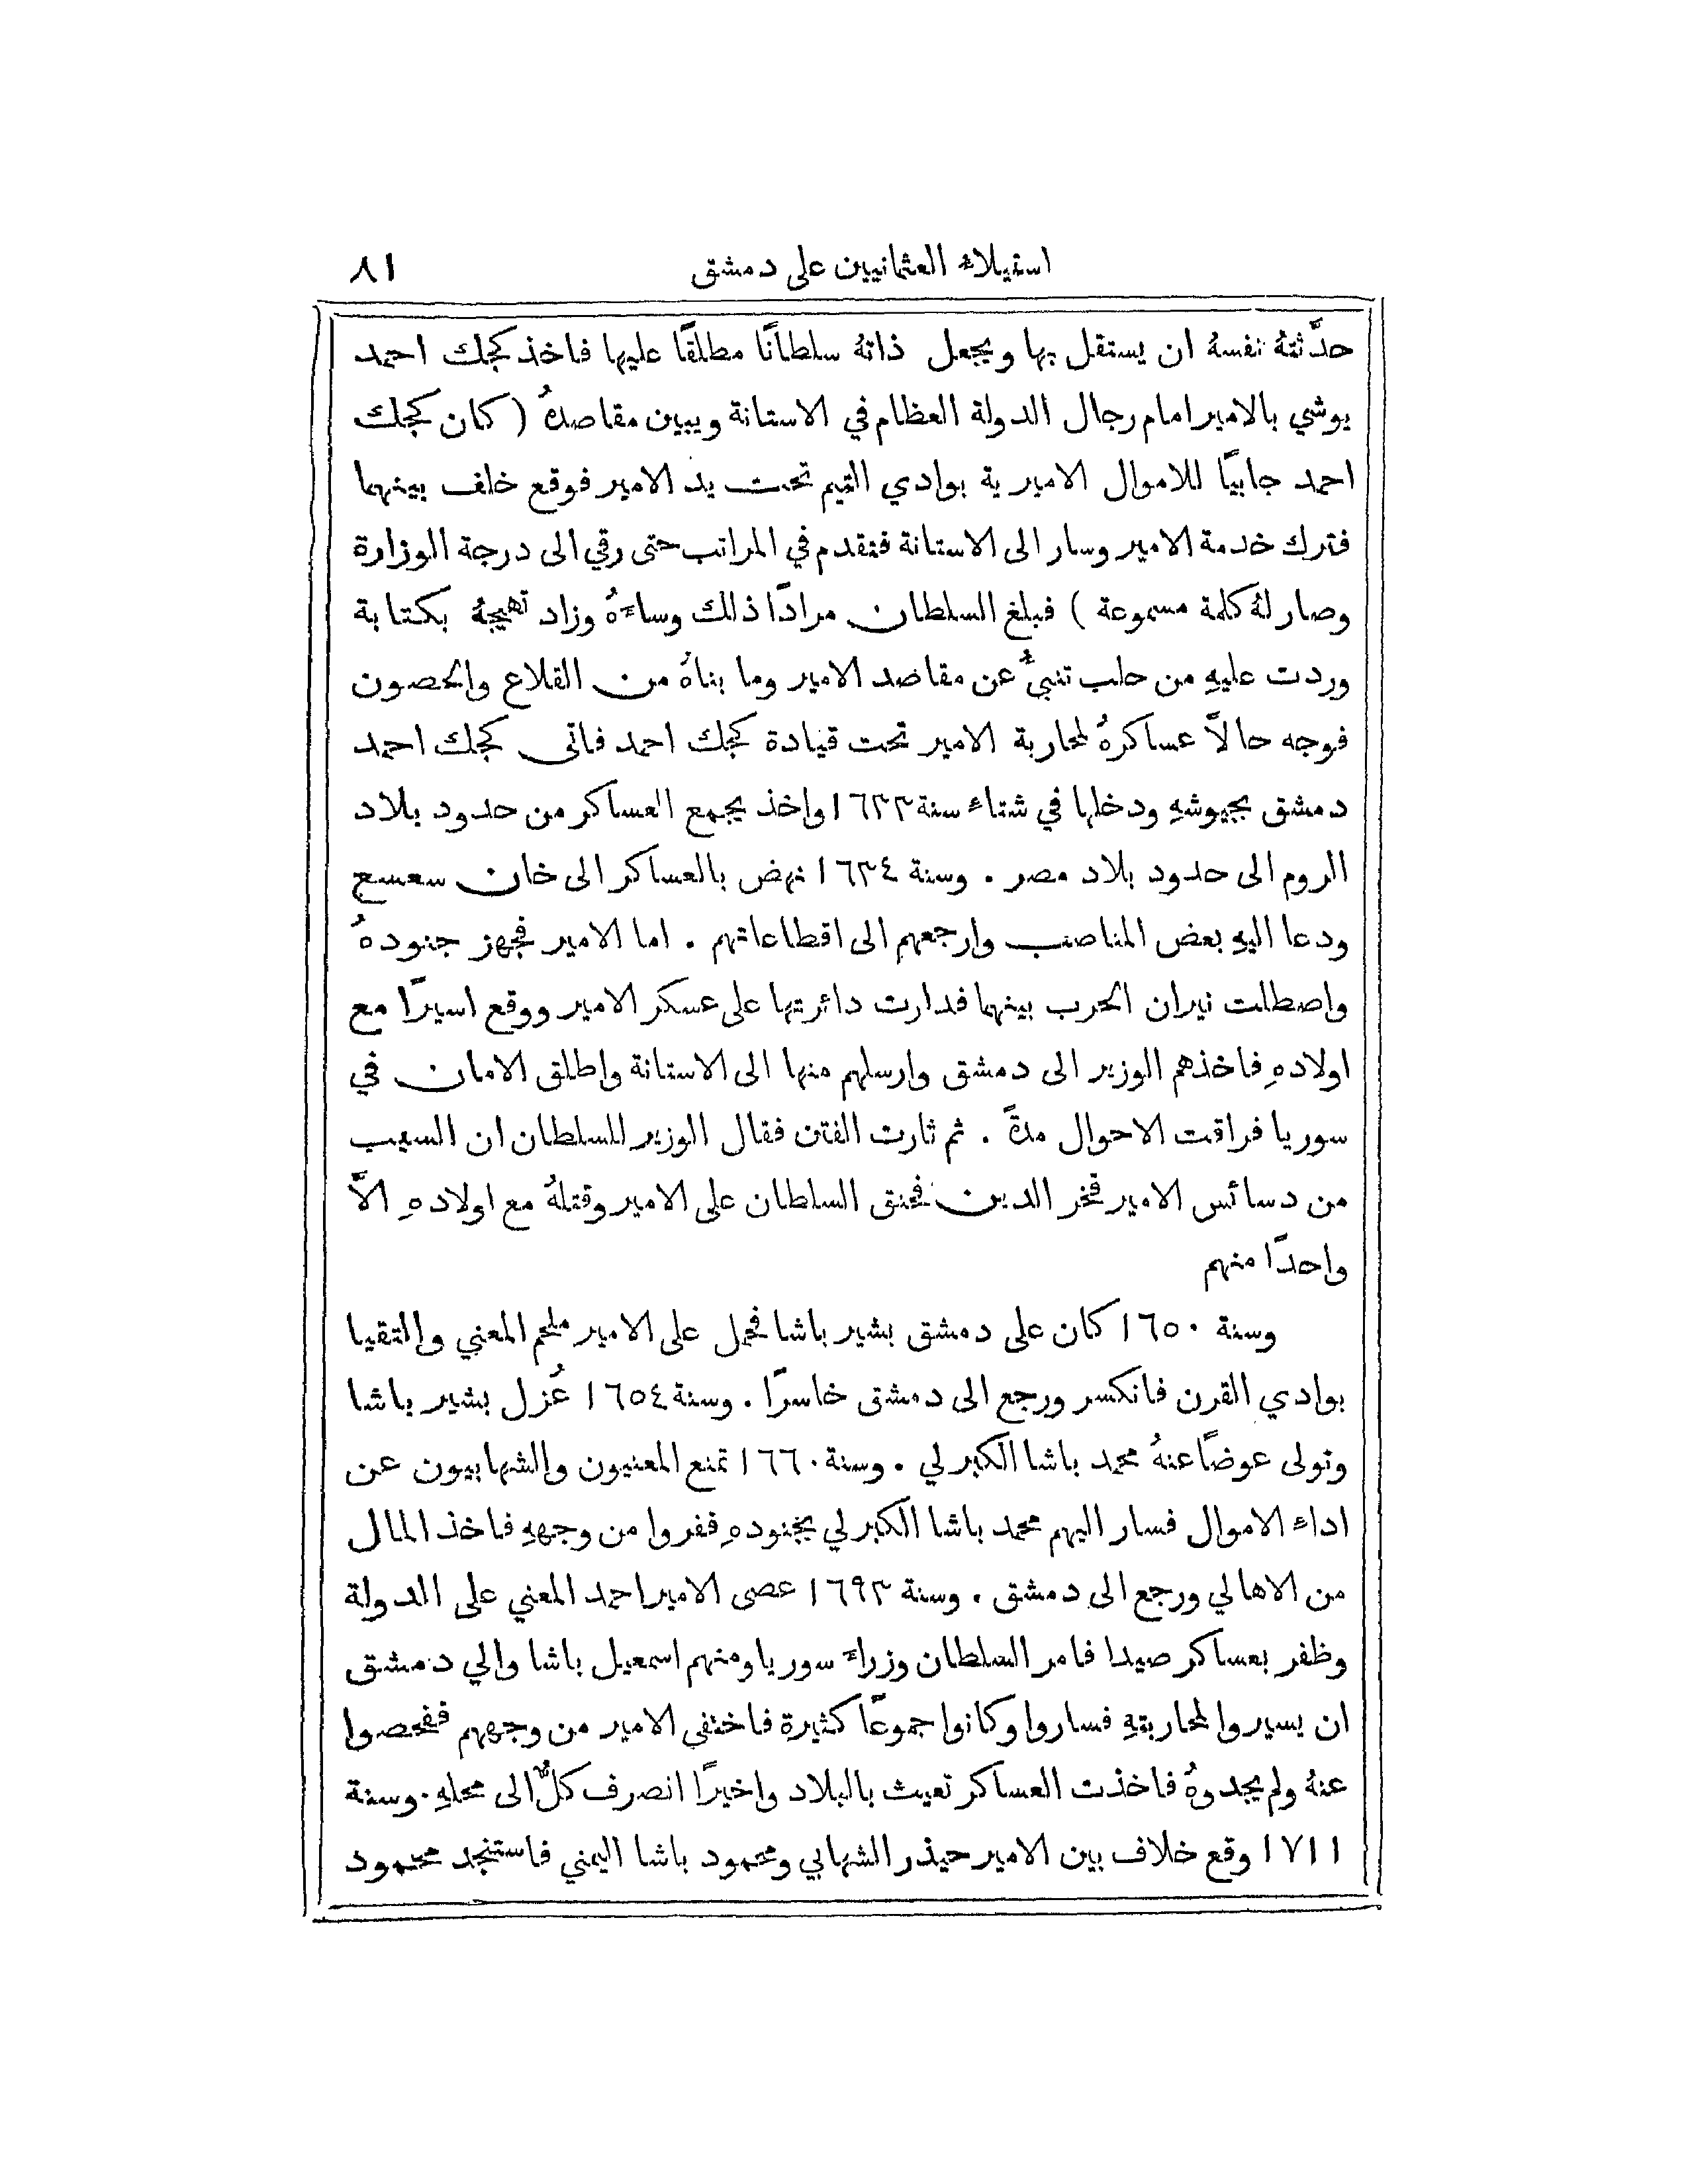 استيلاء العثمانيين على دمشق ٨١
حدَّثتهُ نفسهُ ان يستقل بها ويجعل ذاتهُ سلطانًا مطلقًا عليها فاخذ كجك احمد
يوشي بالامير امام رجال الدولة العظام في الاستانة ويبين مقاصدهُ ( كان كجك
احمد جابيًا للاموال الاميرية بوادي التيم تحت يد الامير فوقع خلف بينهما
فترك خدمة الامير وسار الى الاستانة فتقدم في المراتب حتى رقي الى درجة الوزارة
وصار لهُ كلمة مسموعة ) فبلغ السلطان مرادًا ذلك وساءَهُ وزاد تهيجهُ بكتابة
وردت عليهِ من حلب تنبئُ عن مقاصد الامير وما بناهُ من القلاع والحصون
فوجه حالاً عساكرهُ لمحاربة الامير تحت قيادة كجك احمد فاتى كجك احمد
دمشق بجيوشهِ ودخلها في شتاء سنة ١٦٣٣ واخذ يجمع العساكر من حدود بلاد
الروم الى حدود بلاد مصر . وسنة ١٦٣٤ نهض بالعساكر الى خان سعسع
ودعا اليهِ بعض المناصب وارجعهم الى اقطاعاتهم . اما الامير فجهز جنودهُ
واصطلت نيران الحرب بينهما فدارت دائرتها على عسكر الامير ووقع اسيرًا مع
اولادهِ فاخذهم الوزير الى دمشق وارسلهم منها الى الاستانة واطلق الامان في
سوريا فراقت الاحوال مدةً . ثم ثارت الفتن فقال الوزير للسلطان ان السبب
من دسائس الامير فخر الدين فحنق السلطان على الامير وقتلهُ مع اولادهِ الاَّ
واحدًا منهم
وسنة ١٦٥٠ كان على دمشق بشير باشا فحمل على الامير ملحم المعني والتقيا
بوادي القرن فانكسر ورجع الى دمشق خاسرًا . وسنة ١٦٥٤ عُزل بشير باشا
وتولى عوضًا عنهُ محمد باشا الكبرلي . وسنة ١٦٦٠ تمنع المعنيون والشهابيون عن
اداء الاموال فسار اليهم محمد باشا الكبرلي بجنودهِ ففروا من وجههِ فاخذ المال
من الاهالي ورجع الى دمشق . وسنة ١٦٩٣ عصى الامير احمد المعني على الدولة
وظفر بعساكر صيدا فامر السلطان وزراءَ سوريا ومنهم اسمعيل باشا والي دمشق
ان يسيروا لمحاربتهِ فساروا وكانوا جموعًا كثيرة فاختفى الامير من وجههم ففحصوا
عنهُ ولم يجدوهُ فاخذت العساكر تعيث بالبلاد واخيرًا انصرف كلٌّ الى محلهِ . وسنة
١٧١١ وقع خلاف بين الامير حيذر الشهابي ومحمود باشا اليمني فاستنجد محمود